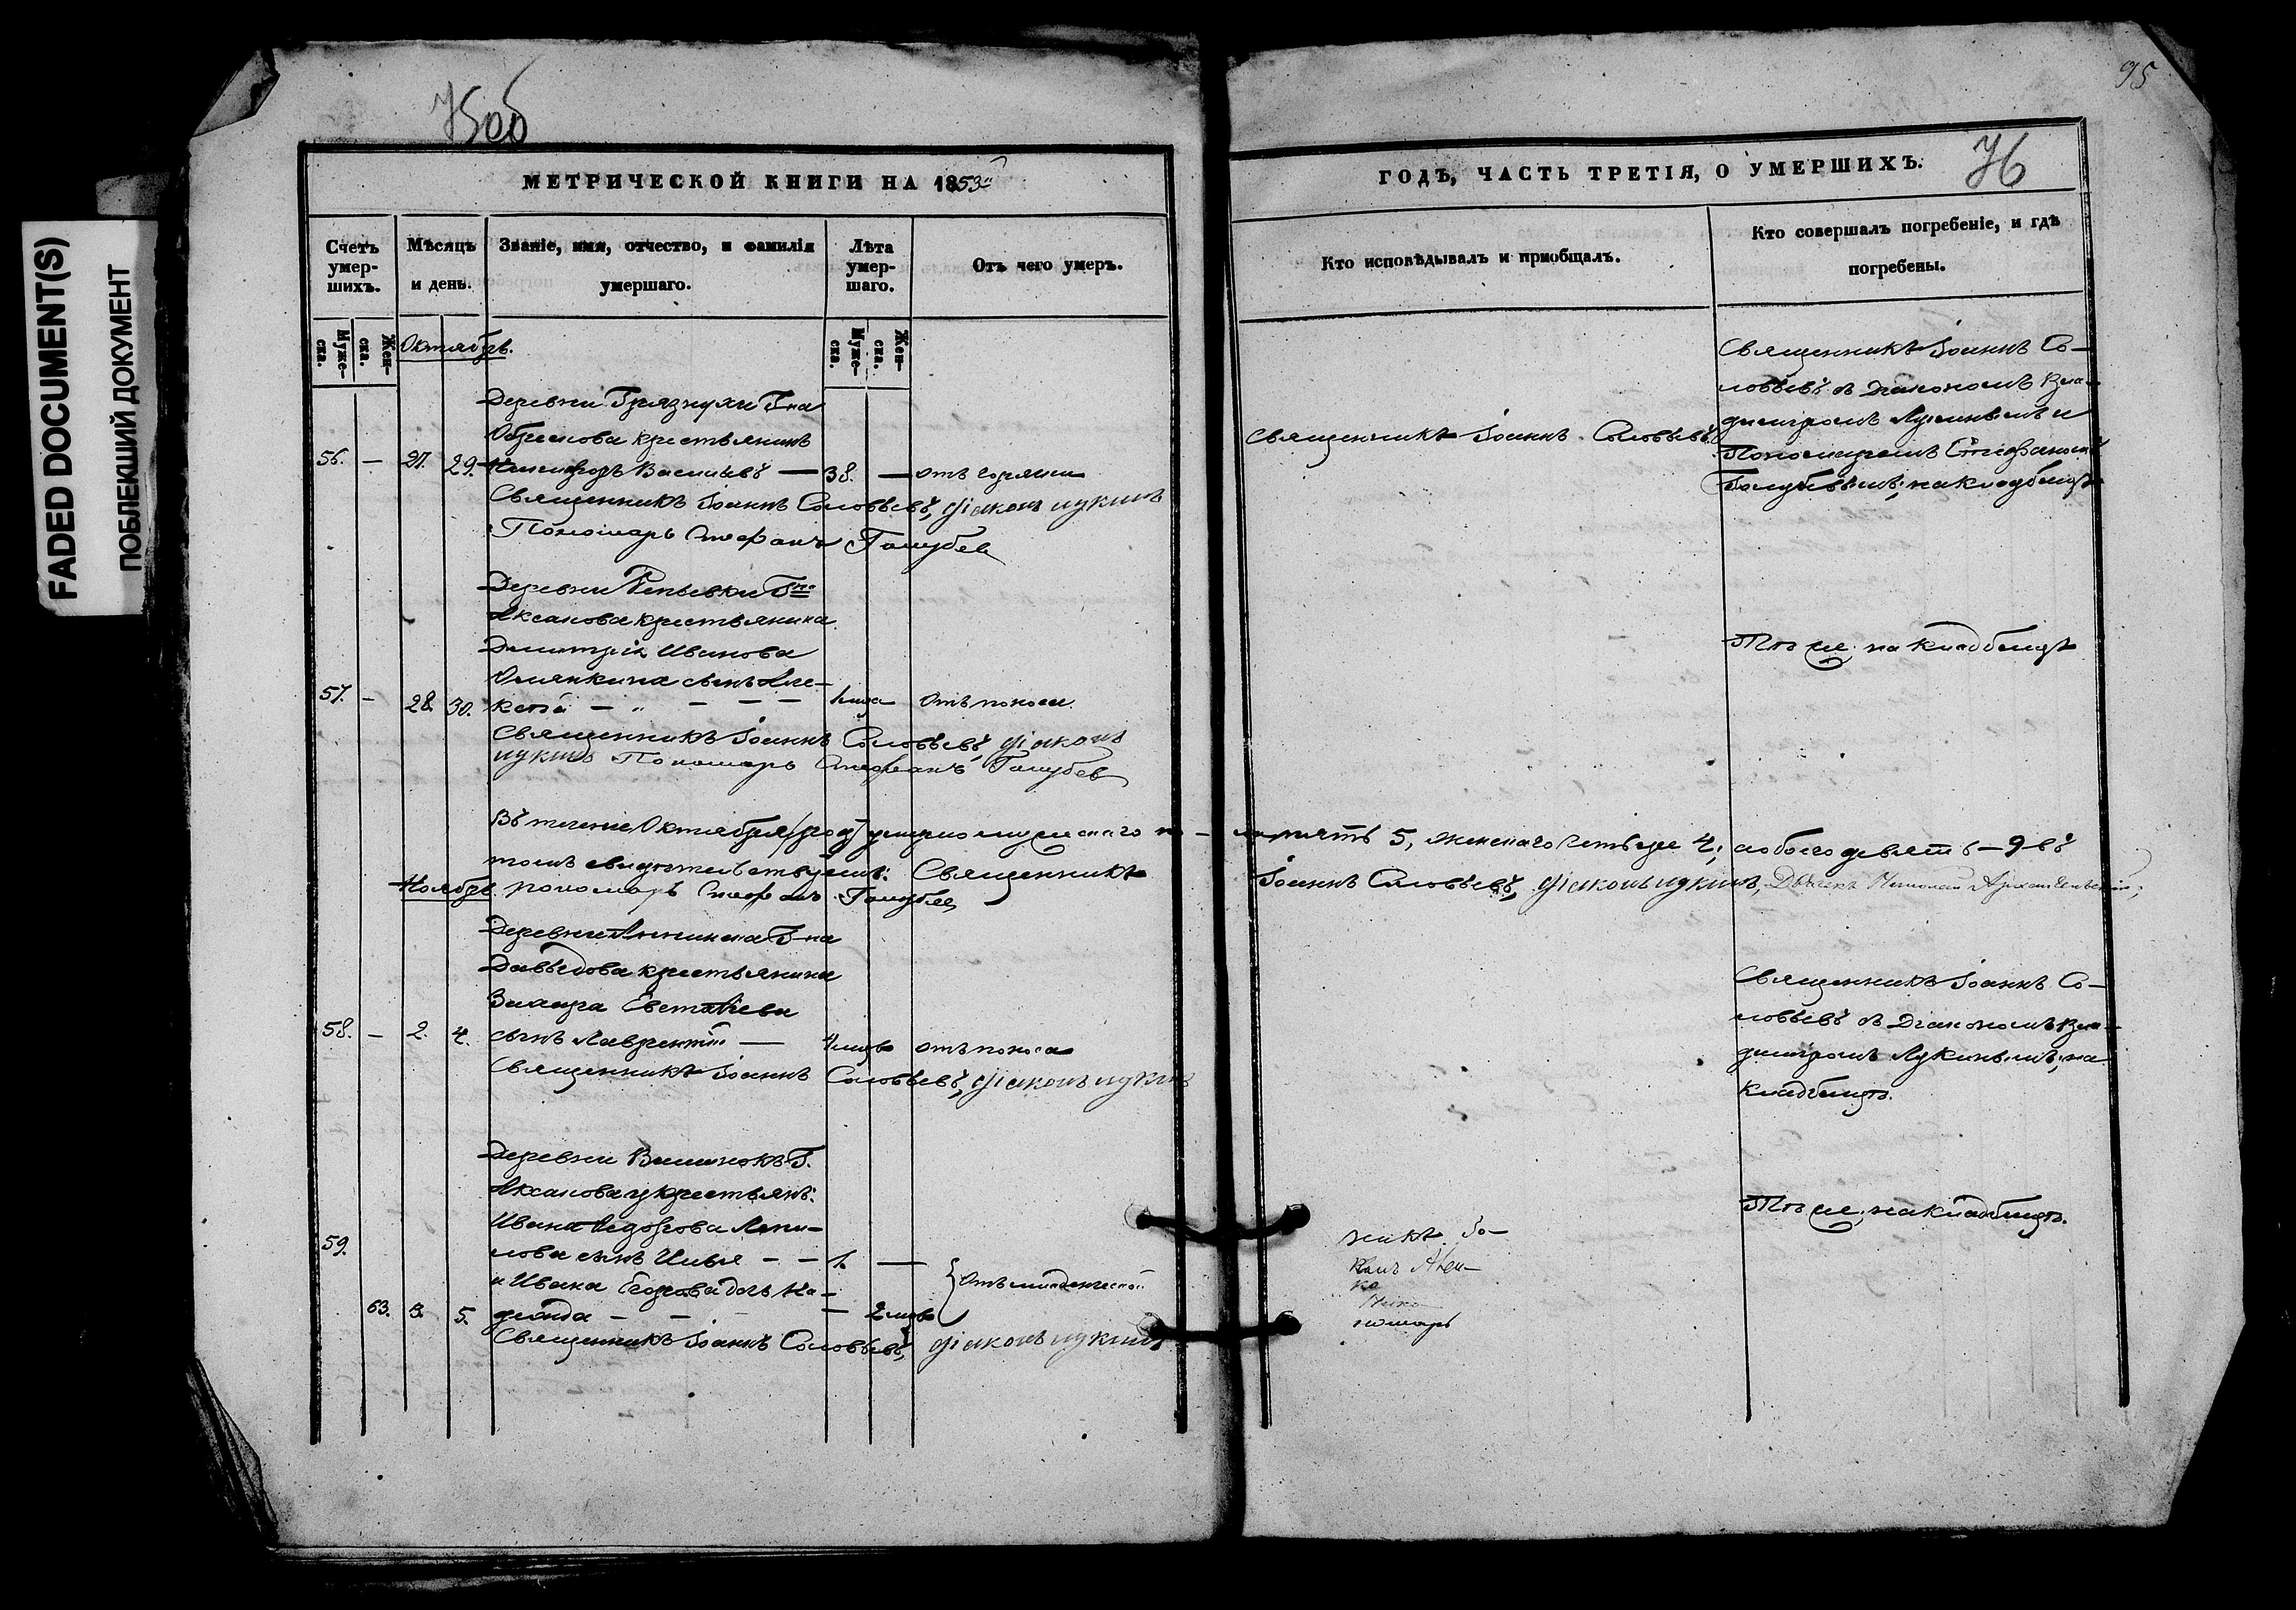 FADED DOCUMENT(S)
ПОБЛЕКШИЙ ДОКУМЕНТ
75об
МЕТРИЧЕСКОЙ КНИГИ НА 1853й
Счетъ умер-шихъ.
Мѣсяцъ и день.
Званіе, имя, отчество, и фамилія умершаго.
Лѣта умер-шаго.
Отъ чего умеръ.
Муже-ска.
Жен-ска.
Муже-ска.
Жен-ска.
Октябрь.
Деревни Грязнухи Г-на
крестьянинъ
56. — 27. 29. Никифоръ Васильевъ — 38. — отъ горячки
Священникъ Іоаннъ Соловьевъ, діаконъ лукинъ
Пономарь Стефанъ Голубев
Деревни Репьевки Г-на
Аксакова крестьянина
Димитрія Иванова
сынъ Але-
57. — 28. 30. ксѣй — „ — — — 1 года отъ поноса.
Священникъ Іоаннъ Соловьевъ, діаконъ
лукинъ Пономарь Стефанъ Голубев
Въ теченіе Октября умерло мужескаго по-
томъ свидѣтельствуемъ: Священникъ
Ноябрь. пономарь Стефанъ Голубев
Деревни Аннинска Г-на
Давыдова крестьянина
Захара Евстафіева
58. — 2. 4. сынъ Лаврентій —  отъ поноса
Священникъ Іоаннъ Соловьевъ, діаконъ лукинъ
Деревни Г.
Аксакова крестьянъ:
Ивана Федорова
59. сынъ Илья — — 1. —
и Ивана Егорова дочь На-
отъ младенческой
63. 3. 5. дежда — — — 2
Священникъ Іоаннъ Соловьевъ, діаконъ лукинъ
95
ГОДЪ, ЧАСТЬ ТРЕТІЯ, О УМЕРШИХЪ.
76
Кто исповѣдывалъ и пріобщалъ.
Кто совершалъ погребеніе, и гдѣ погребены.
Священникъ Іоаннъ Соловьевъ.
Священникъ Іоаннъ Со-
ловьевъ съ Діакономъ Вла-
димиромъ Лукинымъ и
Пономаремъ Стефаномъ
Голубевымъ, на кладбищѣ
Тѣ же, на кладбищѣ
ла пять 5, женскаго четыре 4, а обоего девять — 9 въ
Іоаннъ Соловьевъ, діаконъ лукинъ, Дьячекъ Николай Архангельскій;
Священникъ Іоаннъ Со-
ловьевъ съ Діакономъ Вла-
димиромъ Лукинымъ, на
кладбищѣ.
Тѣ же, на кладбищѣ.
никъ Іо-
номарь